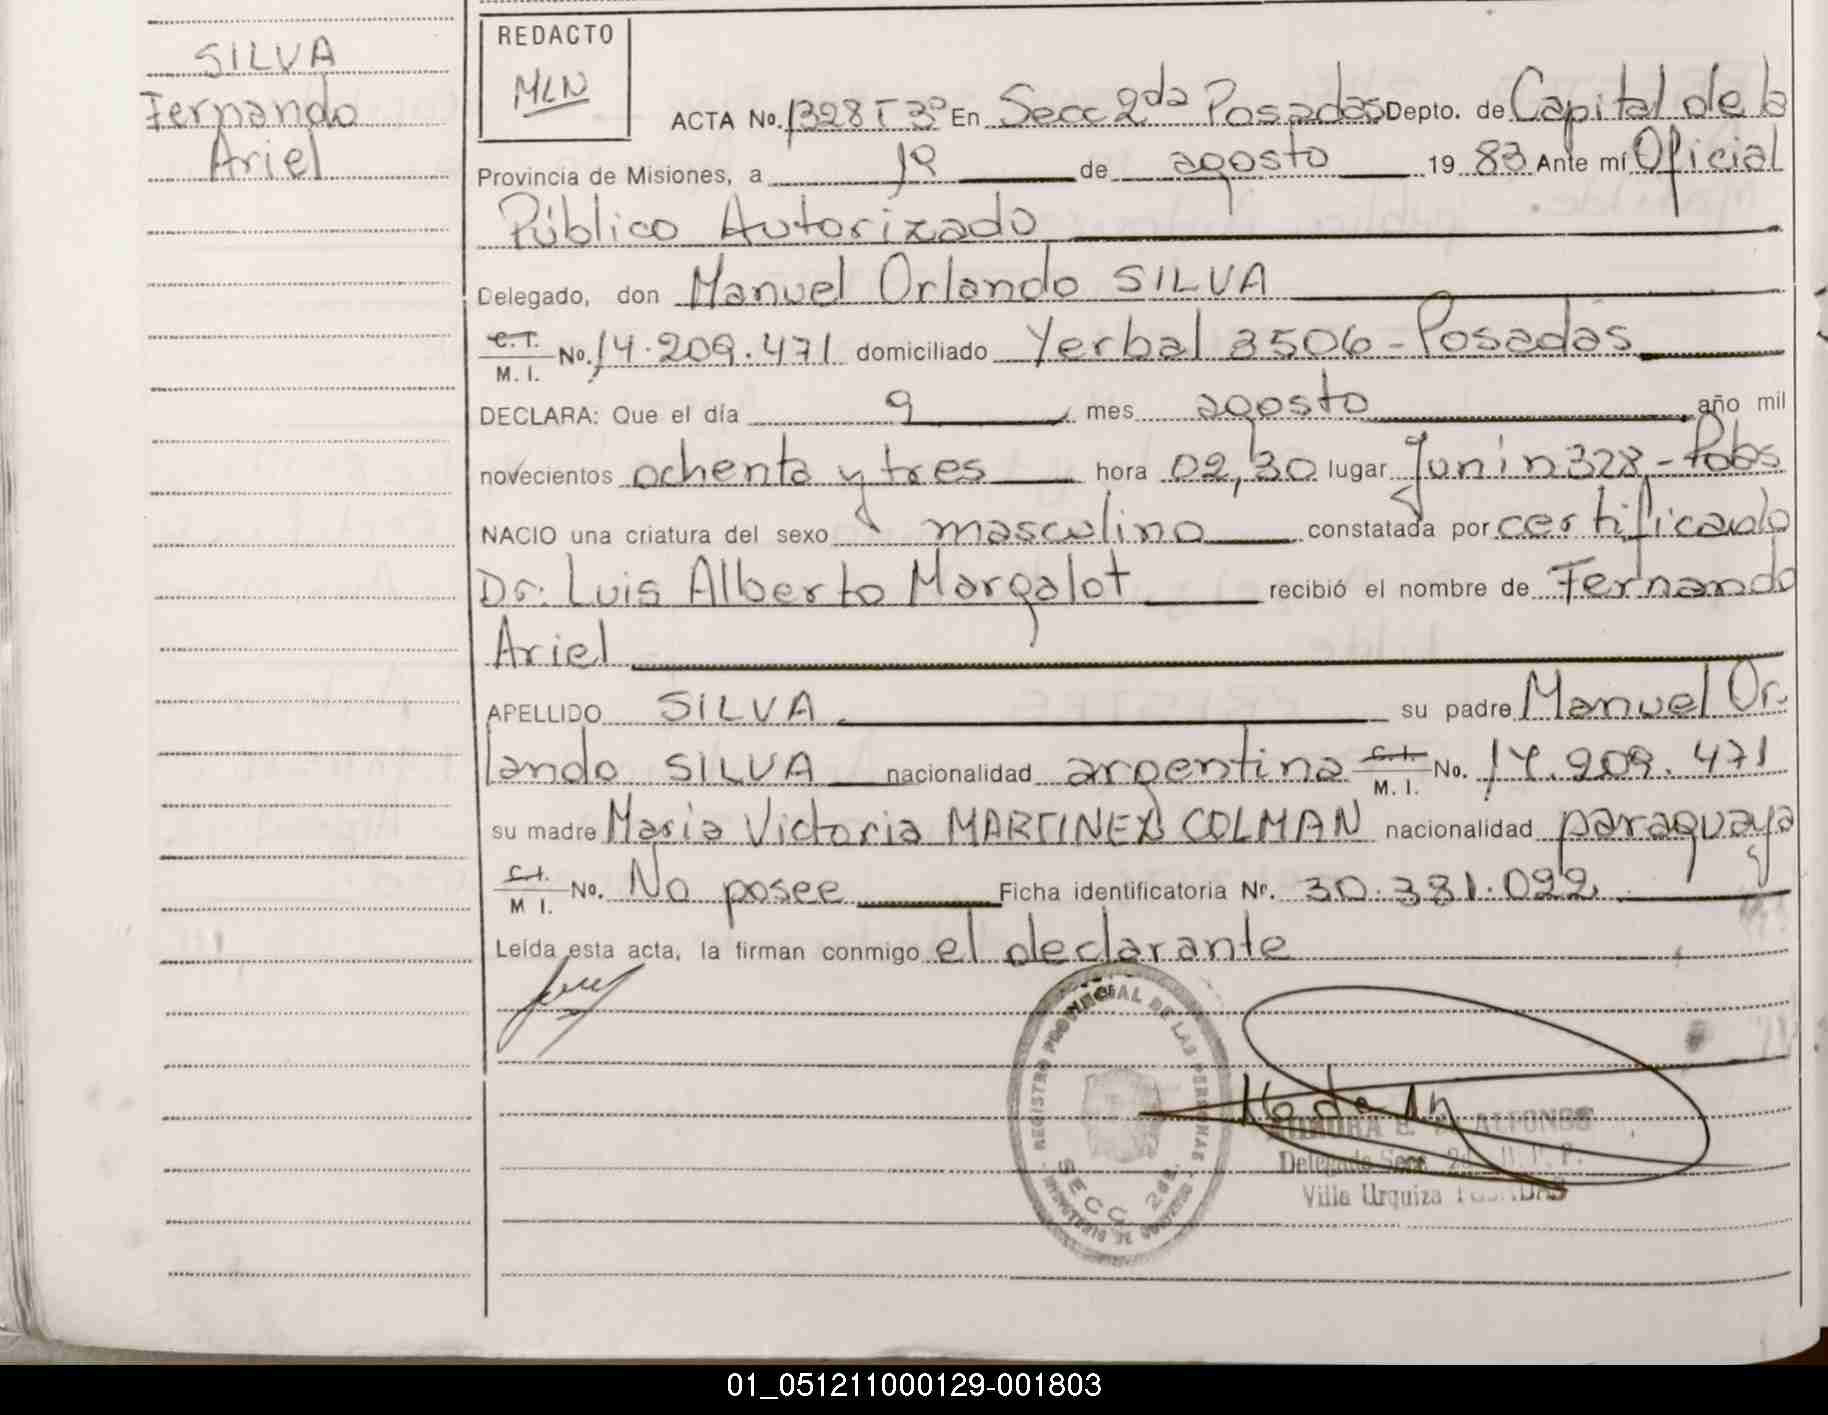 SILVA
Fernando
Ariel
REDACTO
MLN
ACTA No. 1328 T 3º En Secc 2da Posadas Depto. de Capital de la
Provincia de Misiones, a 10 de agosto 19 83 Ante mí Oficial
Público Autorizado
Delegado, don Manuel Orlando SILVA
C.I. M. I. No. 14.209.471 domiciliado Yerbal 3506 - Posadas
DECLARA: Que el día 9 mes agosto año mil
novecientos ochenta y tres hora 02,30 lugar Junin 328 - Pdas
NACIO una criatura del sexo masculino constatada por certificado
Dr. Luis Alberto Margalot recibió el nombre de Fernando
Ariel
APELLIDO SILVA su padre Manuel Or.
lando SILVA nacionalidad argentina C.I. M. I. No. 14.209.471
su madre Maria Victoria MARTINEZ COLMAN nacionalidad paraguaya
C.I. M I. No. No posee Ficha identificatoria Nº. 30.381.022
Leída esta acta, la firman conmigo el declarante
REGISTRO PROVINCIAL DE LAS PERSONAS
SECC. 2da.
ALFONSO
Delegada Secc. 2da
Villa Urquiza POSADAS
01_051211000129-001803